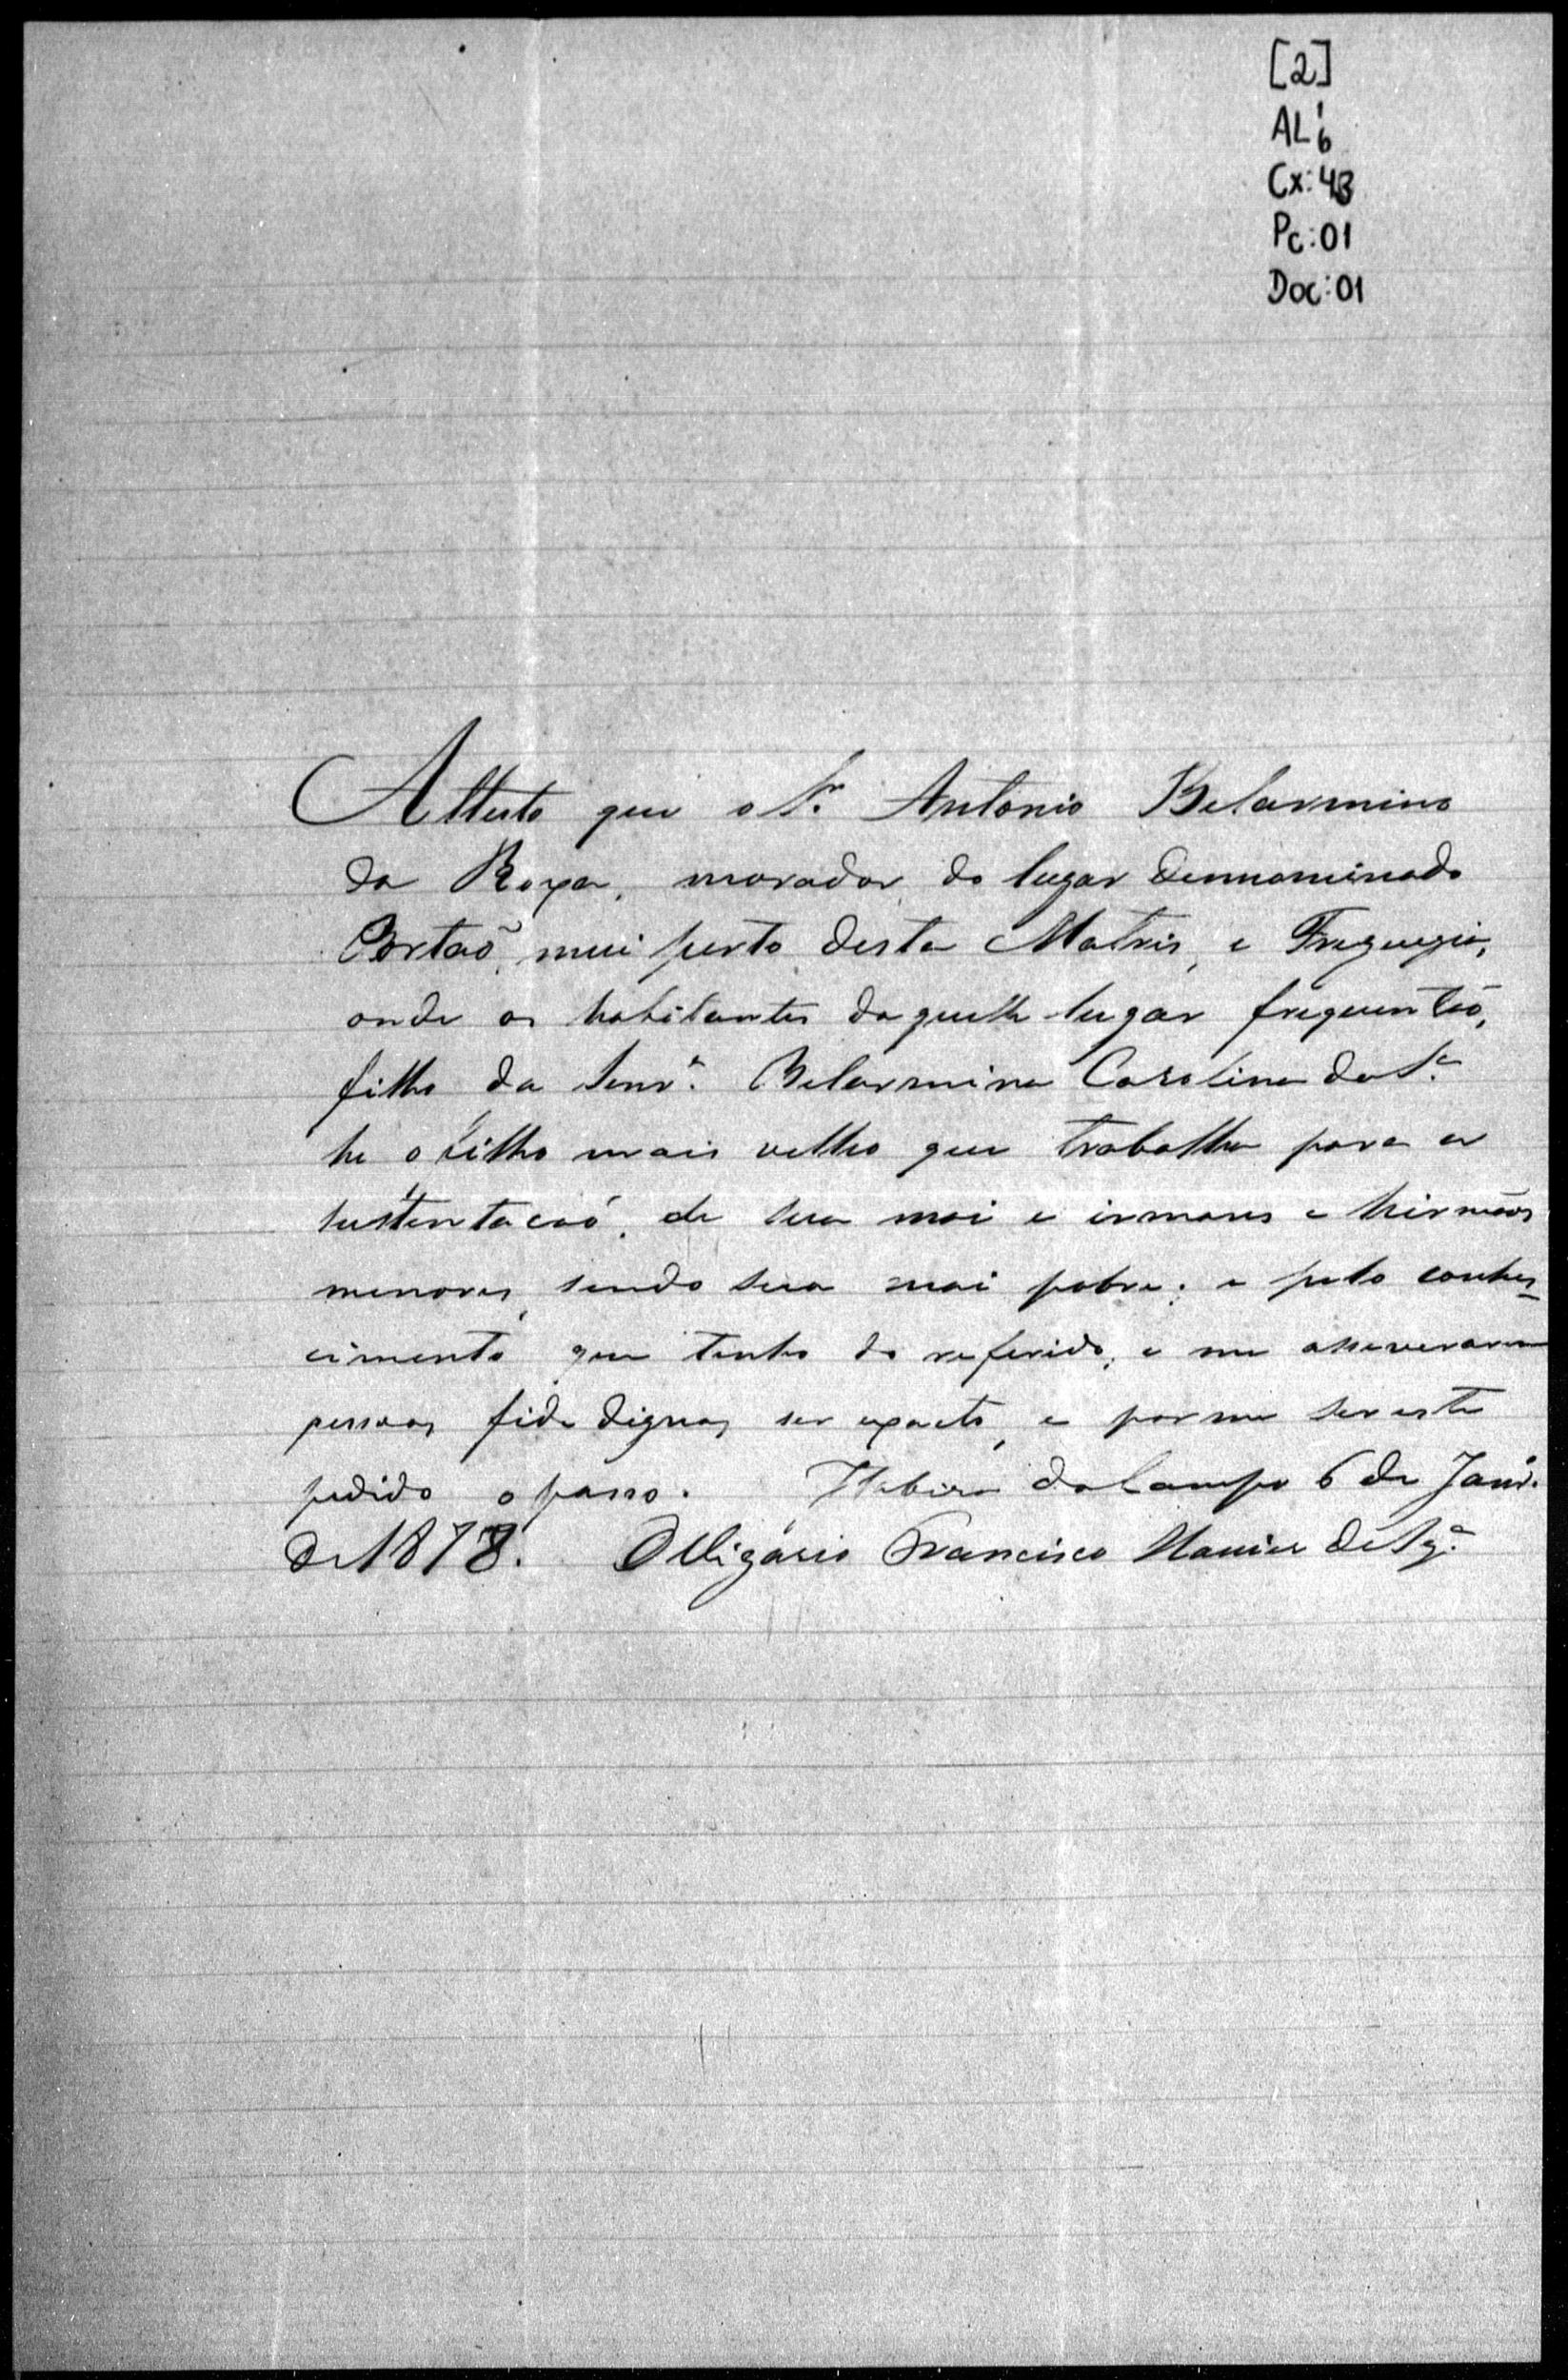 [2]
AL1/6
Cx: 43
Pc: 01
Doc: 01
Attesto que o Sr. Antonio Belarmino
da Roxa, morador do lugar dennominado
Portaõ, mui perto desta Matris, e Freguezia,
onde os habitantes daquelle lugar frequentaõ,
filho da Senrª. Belarmina Carolina da Sª
he o filho mais velho que trabalha para a
sustentacaõ, de sua mai e irmans e hirmaõs
menores, sendo sua mai pobre; e pelo conhe
cimento que tenho do referido, e me asseveraram
pessoas fide dignas ser exacto, e por me ser este
pedido o passo. Itabira do Campo 6 de Janrº.
de 1878. O Vigario Francisco Xavier de